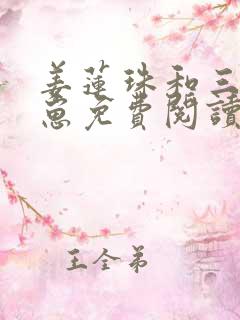 姜蓮珠和三
崽免費閱讀
王全弟